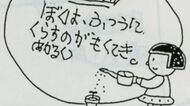 ぼくは、ふつうに
くらすのがもくてき。
あめるく